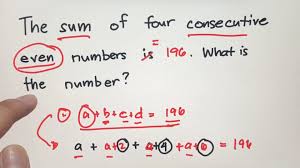 The sum of four consecutive
even numbers is = 196. What is
the number?
a+b+c+d = 196
a + a+2 + a+4 + a+6 = 196